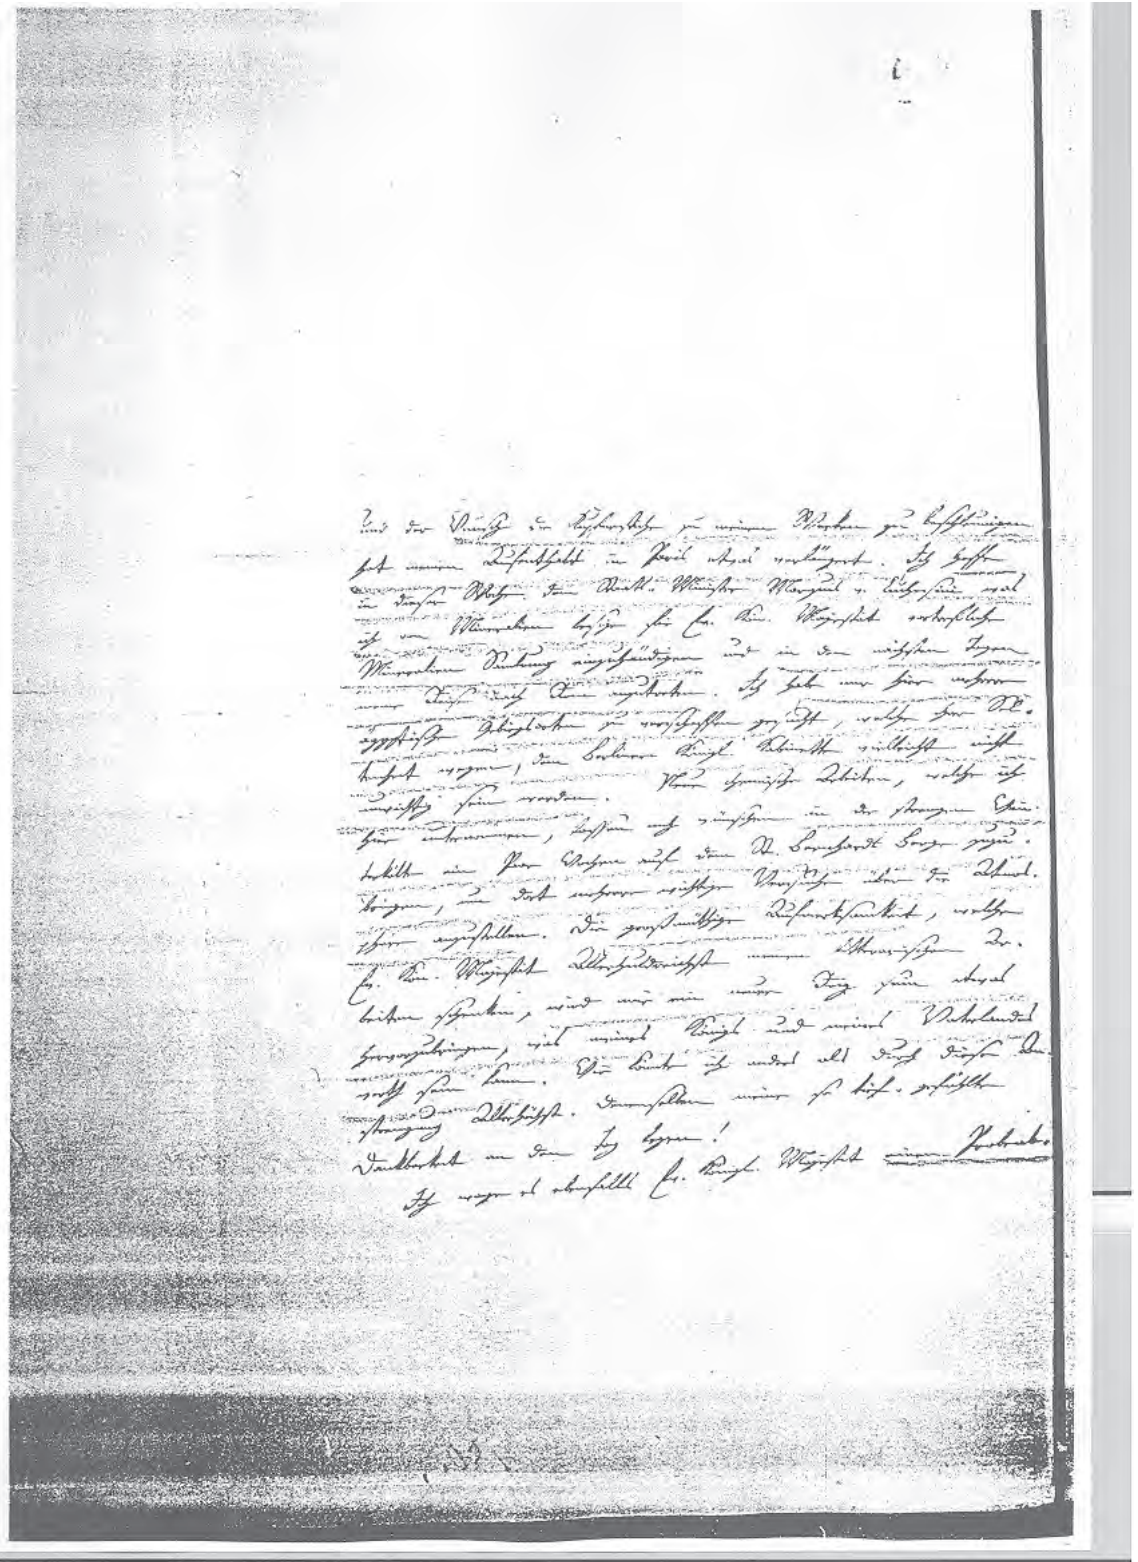 und der Wunsch die Kupferstiche zu meinen Werken zu beschleunigen
hat meinen Aufenthalt in Paris etwas verlängert. Ich hoffe
in dieser Woche dem Staats-Minister Marquis v. Luchesini was
ich von Mineralien besize für Ew. Kön. Majestät vortrefliche
Mineralien Samlung einzuhändigen und in den nächsten Tagen
meine Reise nach Rom anzutreten. Ich habe mir hier mehrere
ägyptische Gebirgsarten zu verschaffen gesucht, welche ihrer Sel-
tenheit wegen, dem Berliner Königl. Kabinette vielleicht nicht
unwichtig sein werden. Neue chemische Arbeiten, welche ich
hier unternommen, lassen mich wünschen in der strengen Win-
terkälte ein Paar Wochen auf dem St. Bernhards Berge zuzu-
bringen, um dort mehrere wichtige Versuche über die Atmos-
phäre anzustellen. Die großmüthige Aufmerksamkeit, welche
Ew. Kön. Majestät Allerhuldreichst meinen litterarischen Ar-
beiten schenken, wird mir ein neuer Sporn sein etwas
hervorzubringen, was meines Königs und meines Vaterlandes
werth sein kann. Wie könte ich anders als durch diese An-
strengung Allerhöchst-Denenselben meine so tief-gefühlte
Dankbarkeit an den Tag legen!
Ich wage es ebenfalls Ew. Königl. Majestät einen Probeab-